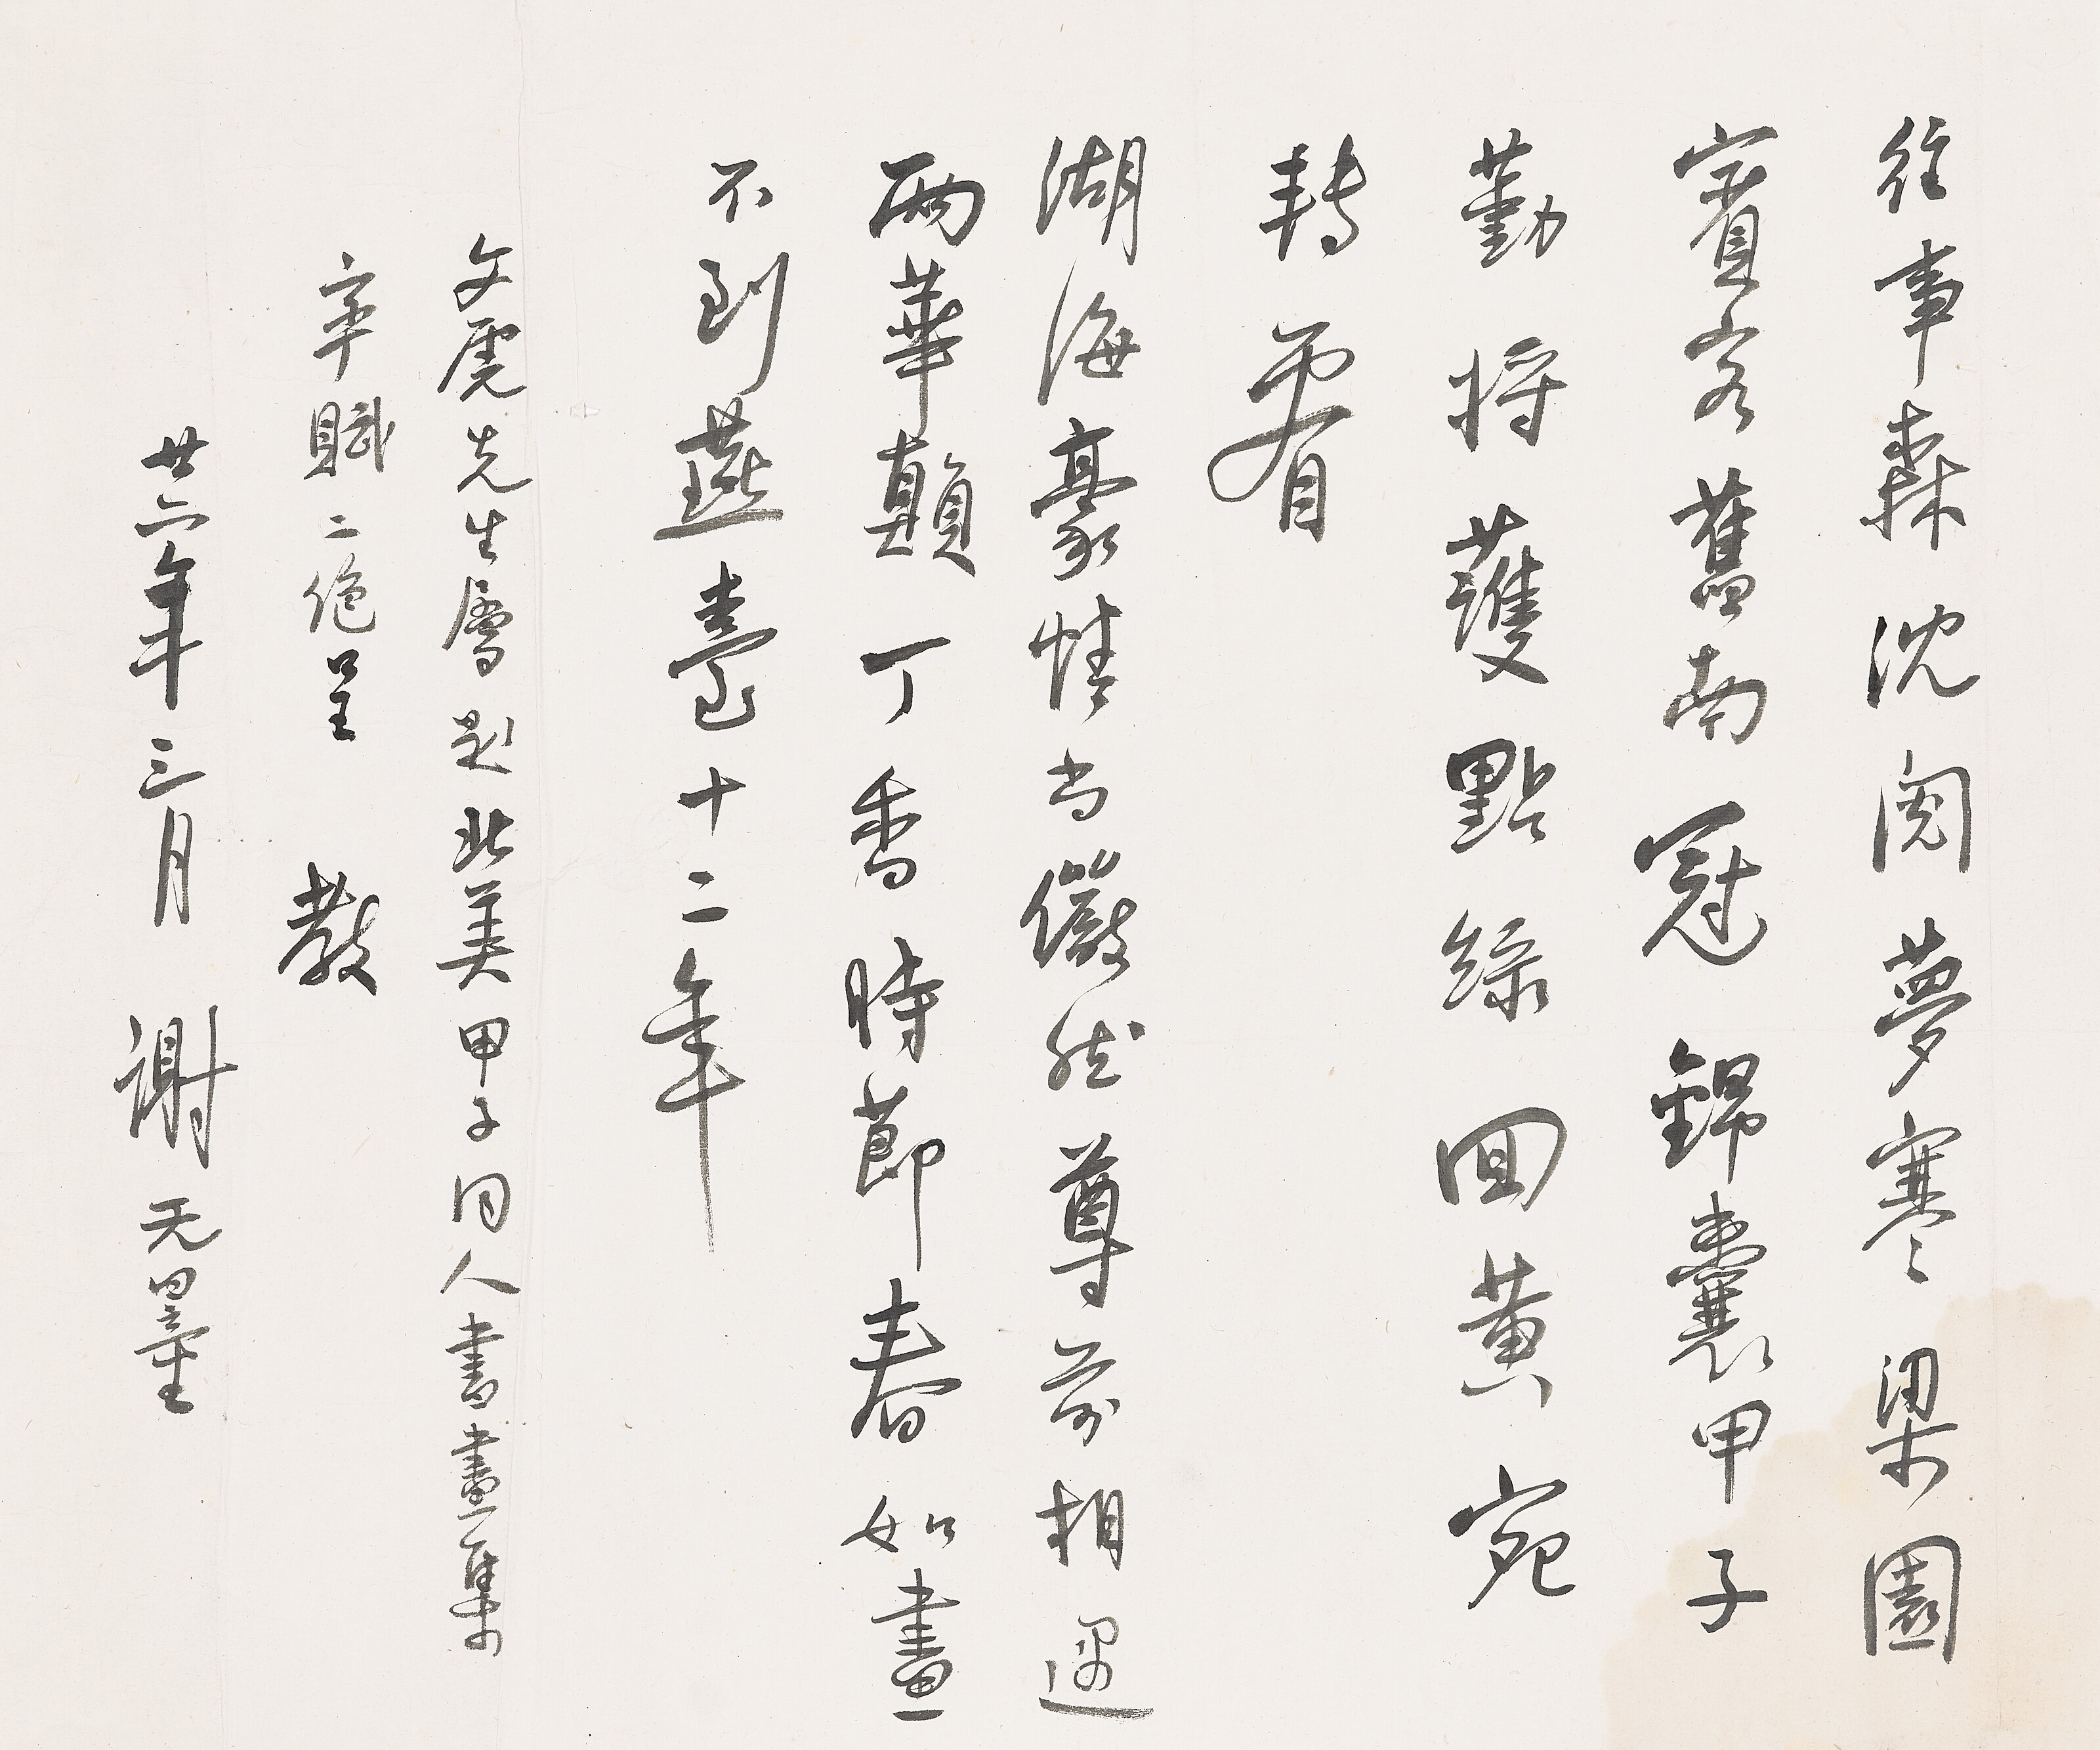 往事森沈閱夢寒梁園
賓客舊南冠錦囊甲子
勤將護點綠回黃宛
轉看
湖海豪情尚儼然尊前相遇
兩華顛丁香時節春如畫
不到燕臺十二年
文虎先生屬題北美甲子同人書畫集
率賦二絕呈教
廿六年三月 謝无量